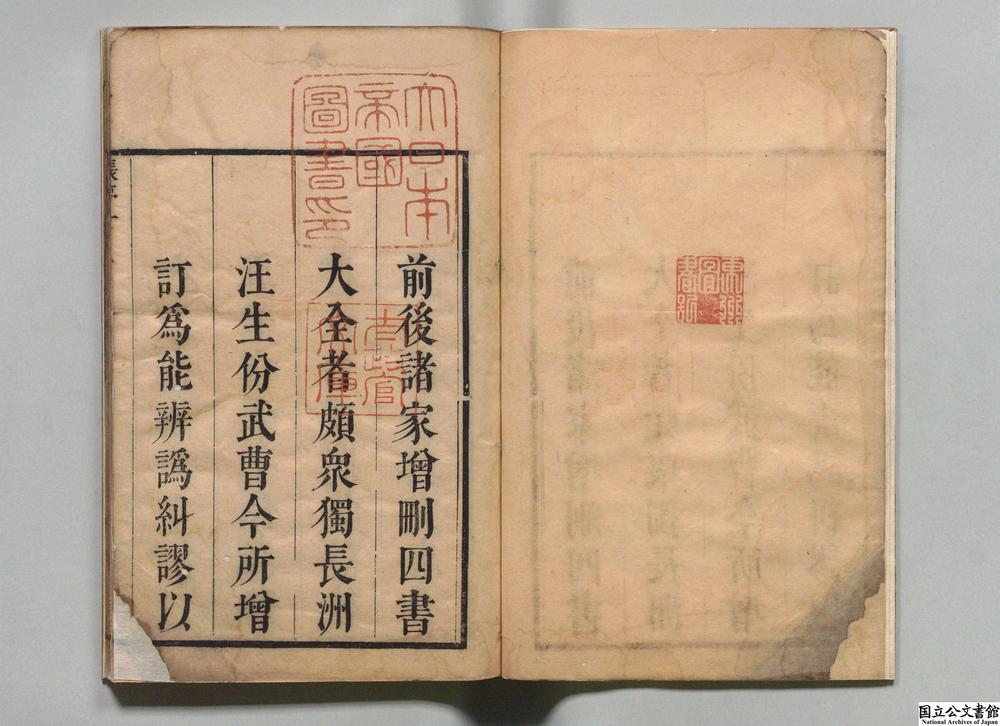 大日本
帝國
圖書印
太政官
文庫
前後諸家增刪四書
大全者頗衆獨長洲
汪生份武曹今所增
訂爲能辨譌糾謬以
国立公文書館
National Archives of Japan